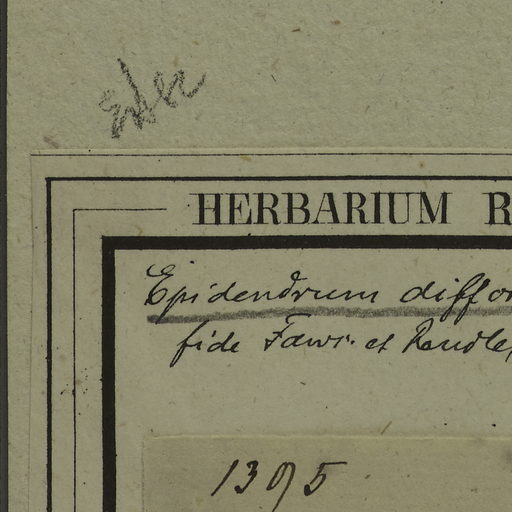 HERBARIUM R
Epidendrum diffor
fide Fawc. et Rendle
1395